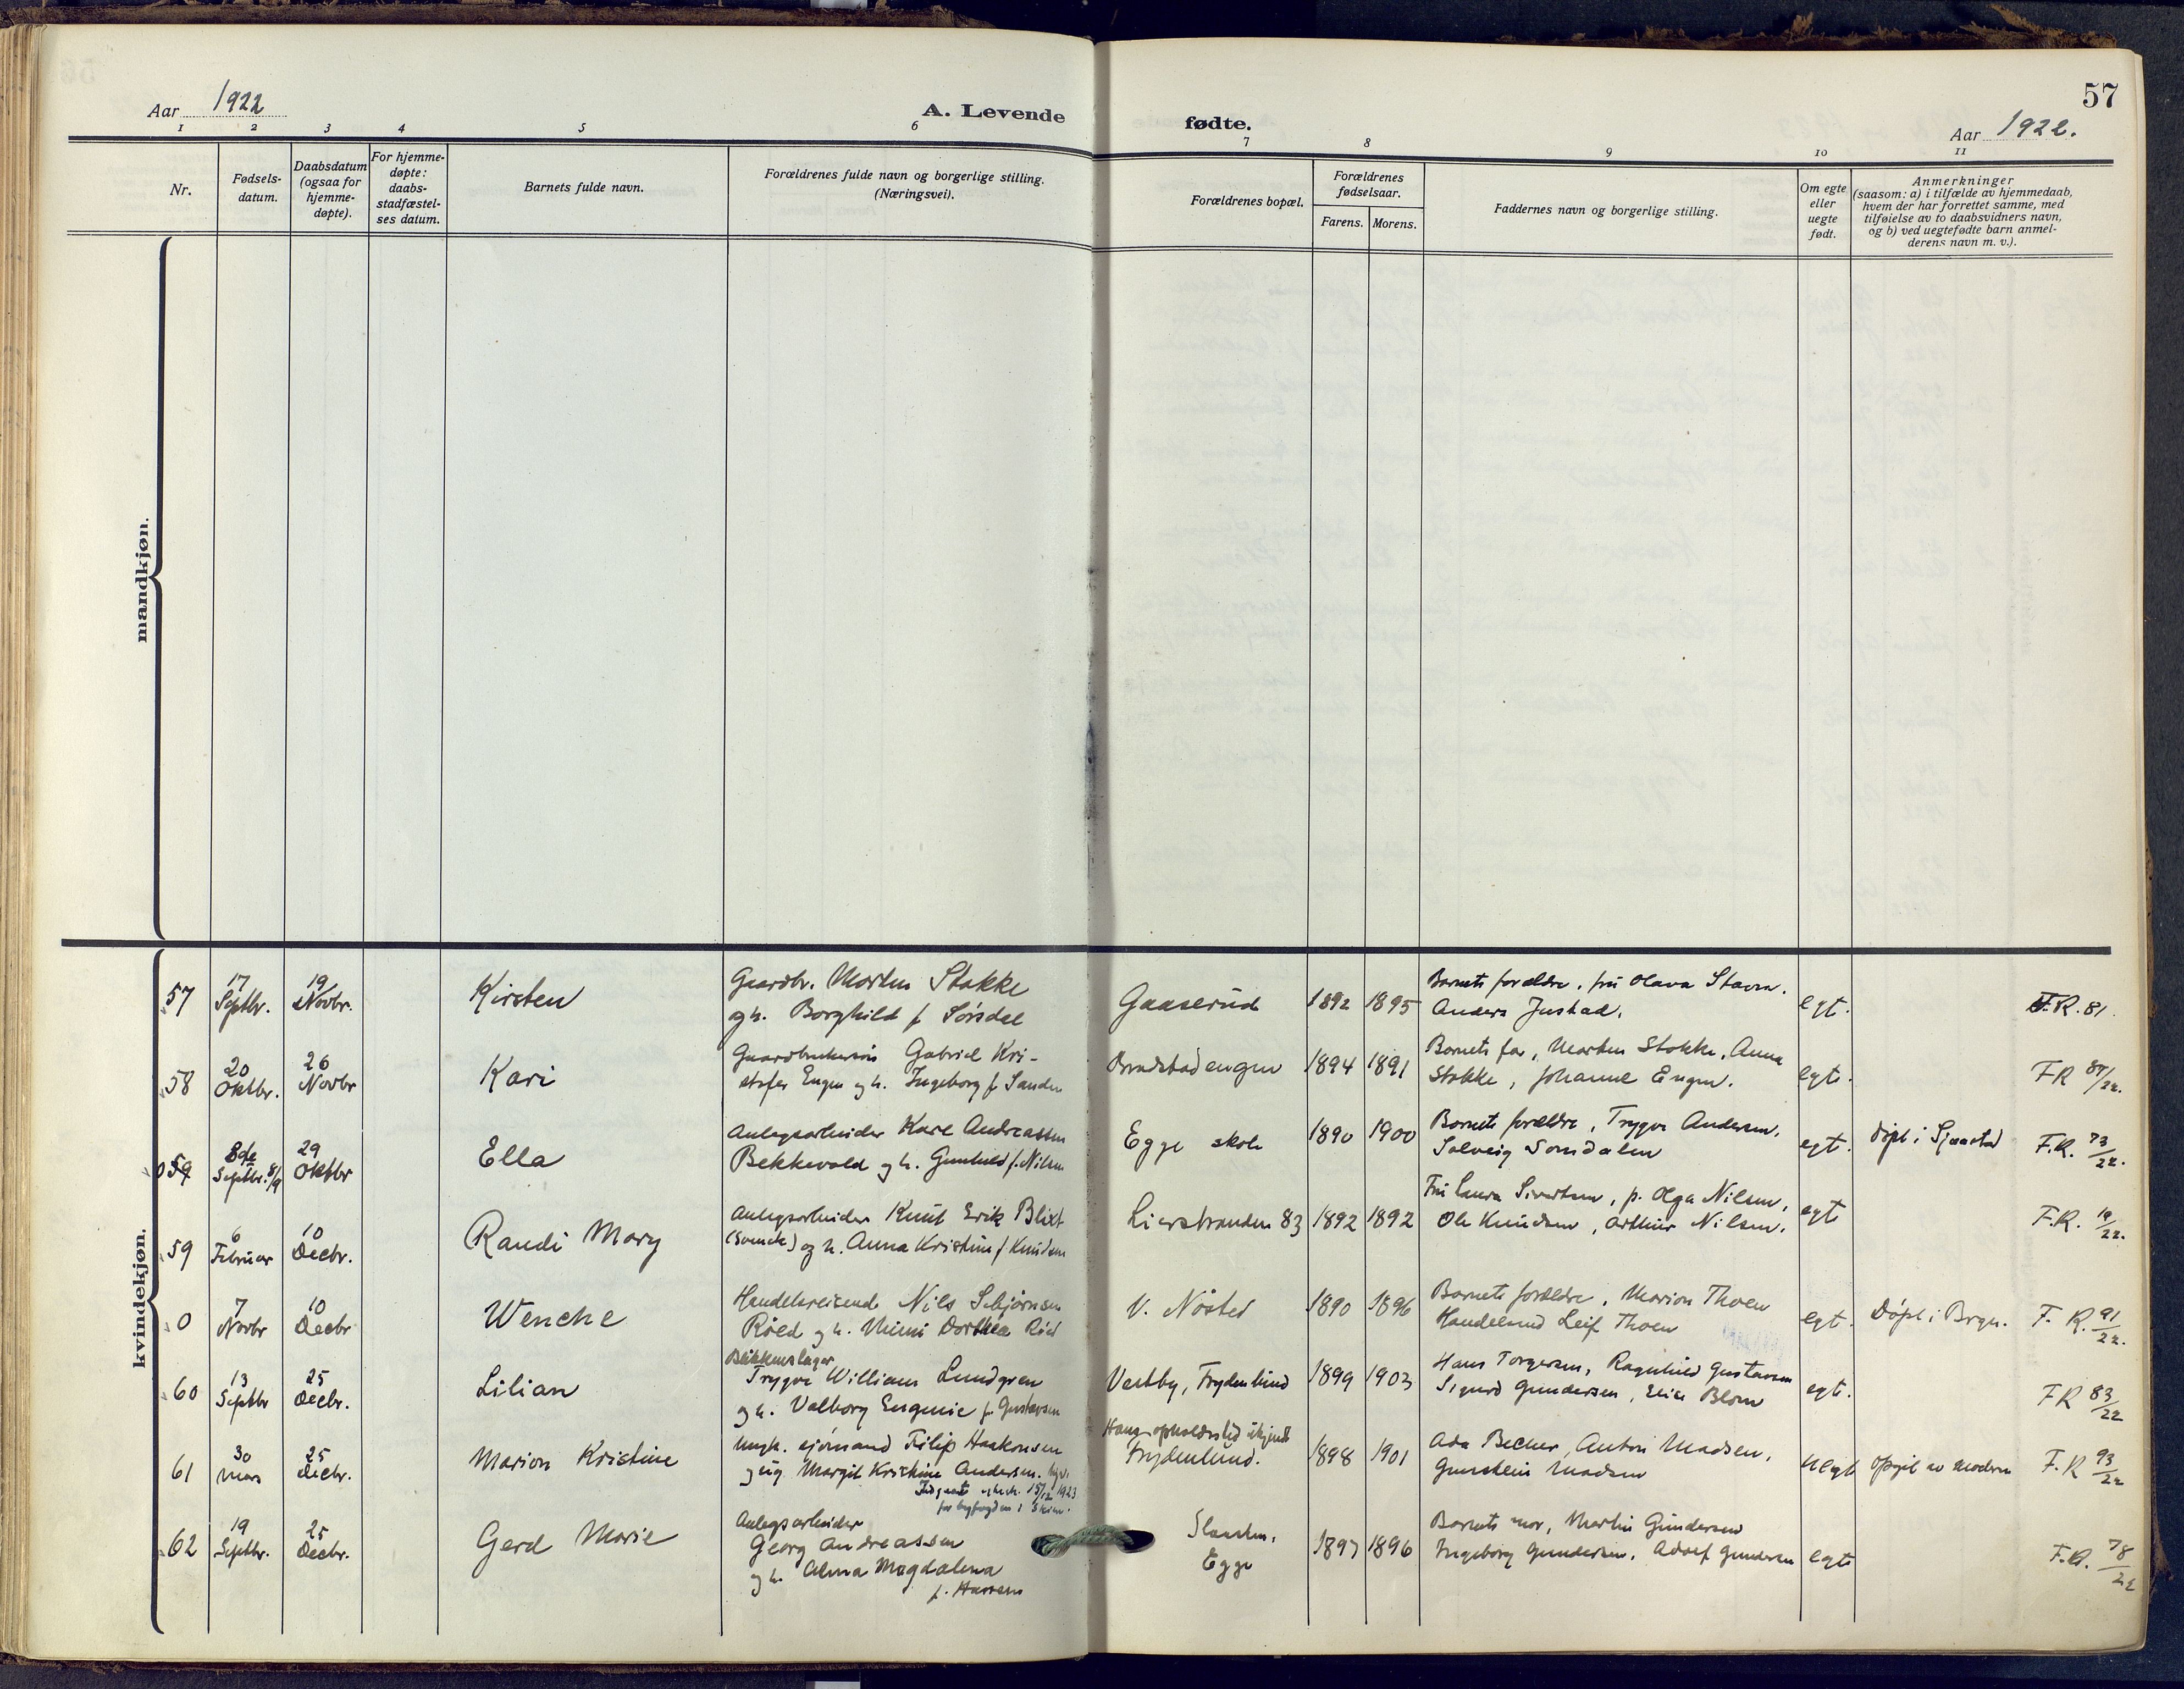 57
Aar 1922
A. Levende fødte.
Aar 1922.
1 2 3 4 5 6 7 8 9 10 11
Nr.
Fødsels-
datum.
Daabsdatum
(ogsaa for
hjemme-
døpte).
For hjemme-
døpte:
daabs-
stadfæstel-
ses datum.
Barnets fulde navn.
Forældrenes fulde navn og borgerlige stilling.
(Næringsvei).
Forældrenes bopæl.
Forældrenes
fødselsaar.
Farens. Morens.
Faddernes navn og borgerlige stilling.
Om egte
eller
uegte
født.
Anmerkninger
(saasom: a) i tilfælde av hjemmedaab,
hvem der har forrettet samme, med
tilføielse av to daabsvidners navn,
og b) ved uegtefødte barn anmel-
derens navn m. v.).
mandkjøn.
kvindekjøn.
57
17
Septbr.
19
Novbr.
Kirsten
Gaardbr. Morten Stokke
og h. Borghild f. Sørsdal
Gaaserud
1892 1895
Barnets forældre, fru Olava Stavn.
Anders Justad.
egt.
F.R. 81.
58
20
Oktbr.
26
Novbr
Kari
Gaardbrukersøn Gabriel Kri-
stofer Engen og h. Ingeborg f. Sanden
1894 1891
Barnets far, Morten Stokke, Anna
Stokke, Johanne Engen.
egte.
FR
59
8de
Septbr. 8/9
29
Oktbr
Ella
Anlegsarbeider Karl Andreassen
Bekkevold og h. Gunhild f. Nilsen
Egge skole
1890 1900
Barnets forældre, Trygve Andersen,
Solveig Somdalen
egt.
døpt i Sjaastad
F.R. 73/22.
59
6
Februar
10
Decbr.
Randi Mary
Anlegsarbeider Knut Erik Blixt
(svensk) og h. Anna Kristine f. Knudsen
Lierstranden 83
1892 1892
Fru Laura Sivertsen, p. Olga Nilsen,
Ole Knudsen, Arthur Nilsen.
egt
F.R. 19/22.
0
7
Novbr
10
Decbr
Wenche
Handelsreisende Nils Schjørnsen
Røed og h. Mimi Dorthea Röed
V. Nøsted
1890 1896
Barnets forældre, Marion Thoen
Handelsmd Leif Thoen
egt.
Døpt i Brgn.
F. R. 91/22.
60
13
Septbr
25
Decbr.
Lilian
Blikkenslager
Trygve William Lundgren
og h. Valborg Eugenie f. Gustavsen
Vestby, Frydenlund
1899 1903
Hans Torgersen, Ragnhild Gustavsen
Sigurd Gundersen, Elise Blom
egt.
FR 83/22
61
30
Mars
25
Decbr.
Marion Kristine
Ungk. sjømand Filip Haakonsen
og pig. Margit Kristine Andersen.
15/12 1923
for byfogden i Skien.
Hans opholdssted ukjendt
Frydenlund.
1898 1901
Ada Becher, Anton Madsen,
Gunstein Madsen
uegt
Opgit av moderen
F.R 93/22
62
19
Septbr.
25
Decbr.
Gerd Marie
Anlegsarbeider
Georg Andreassen
og h. Alma Magdalena
f. Hansen
Egge
1897 1896
Barnets mor, Martin Gundersen
Ingeborg Gundersen, Adolf Gundersen
egte
F.R. 78/22